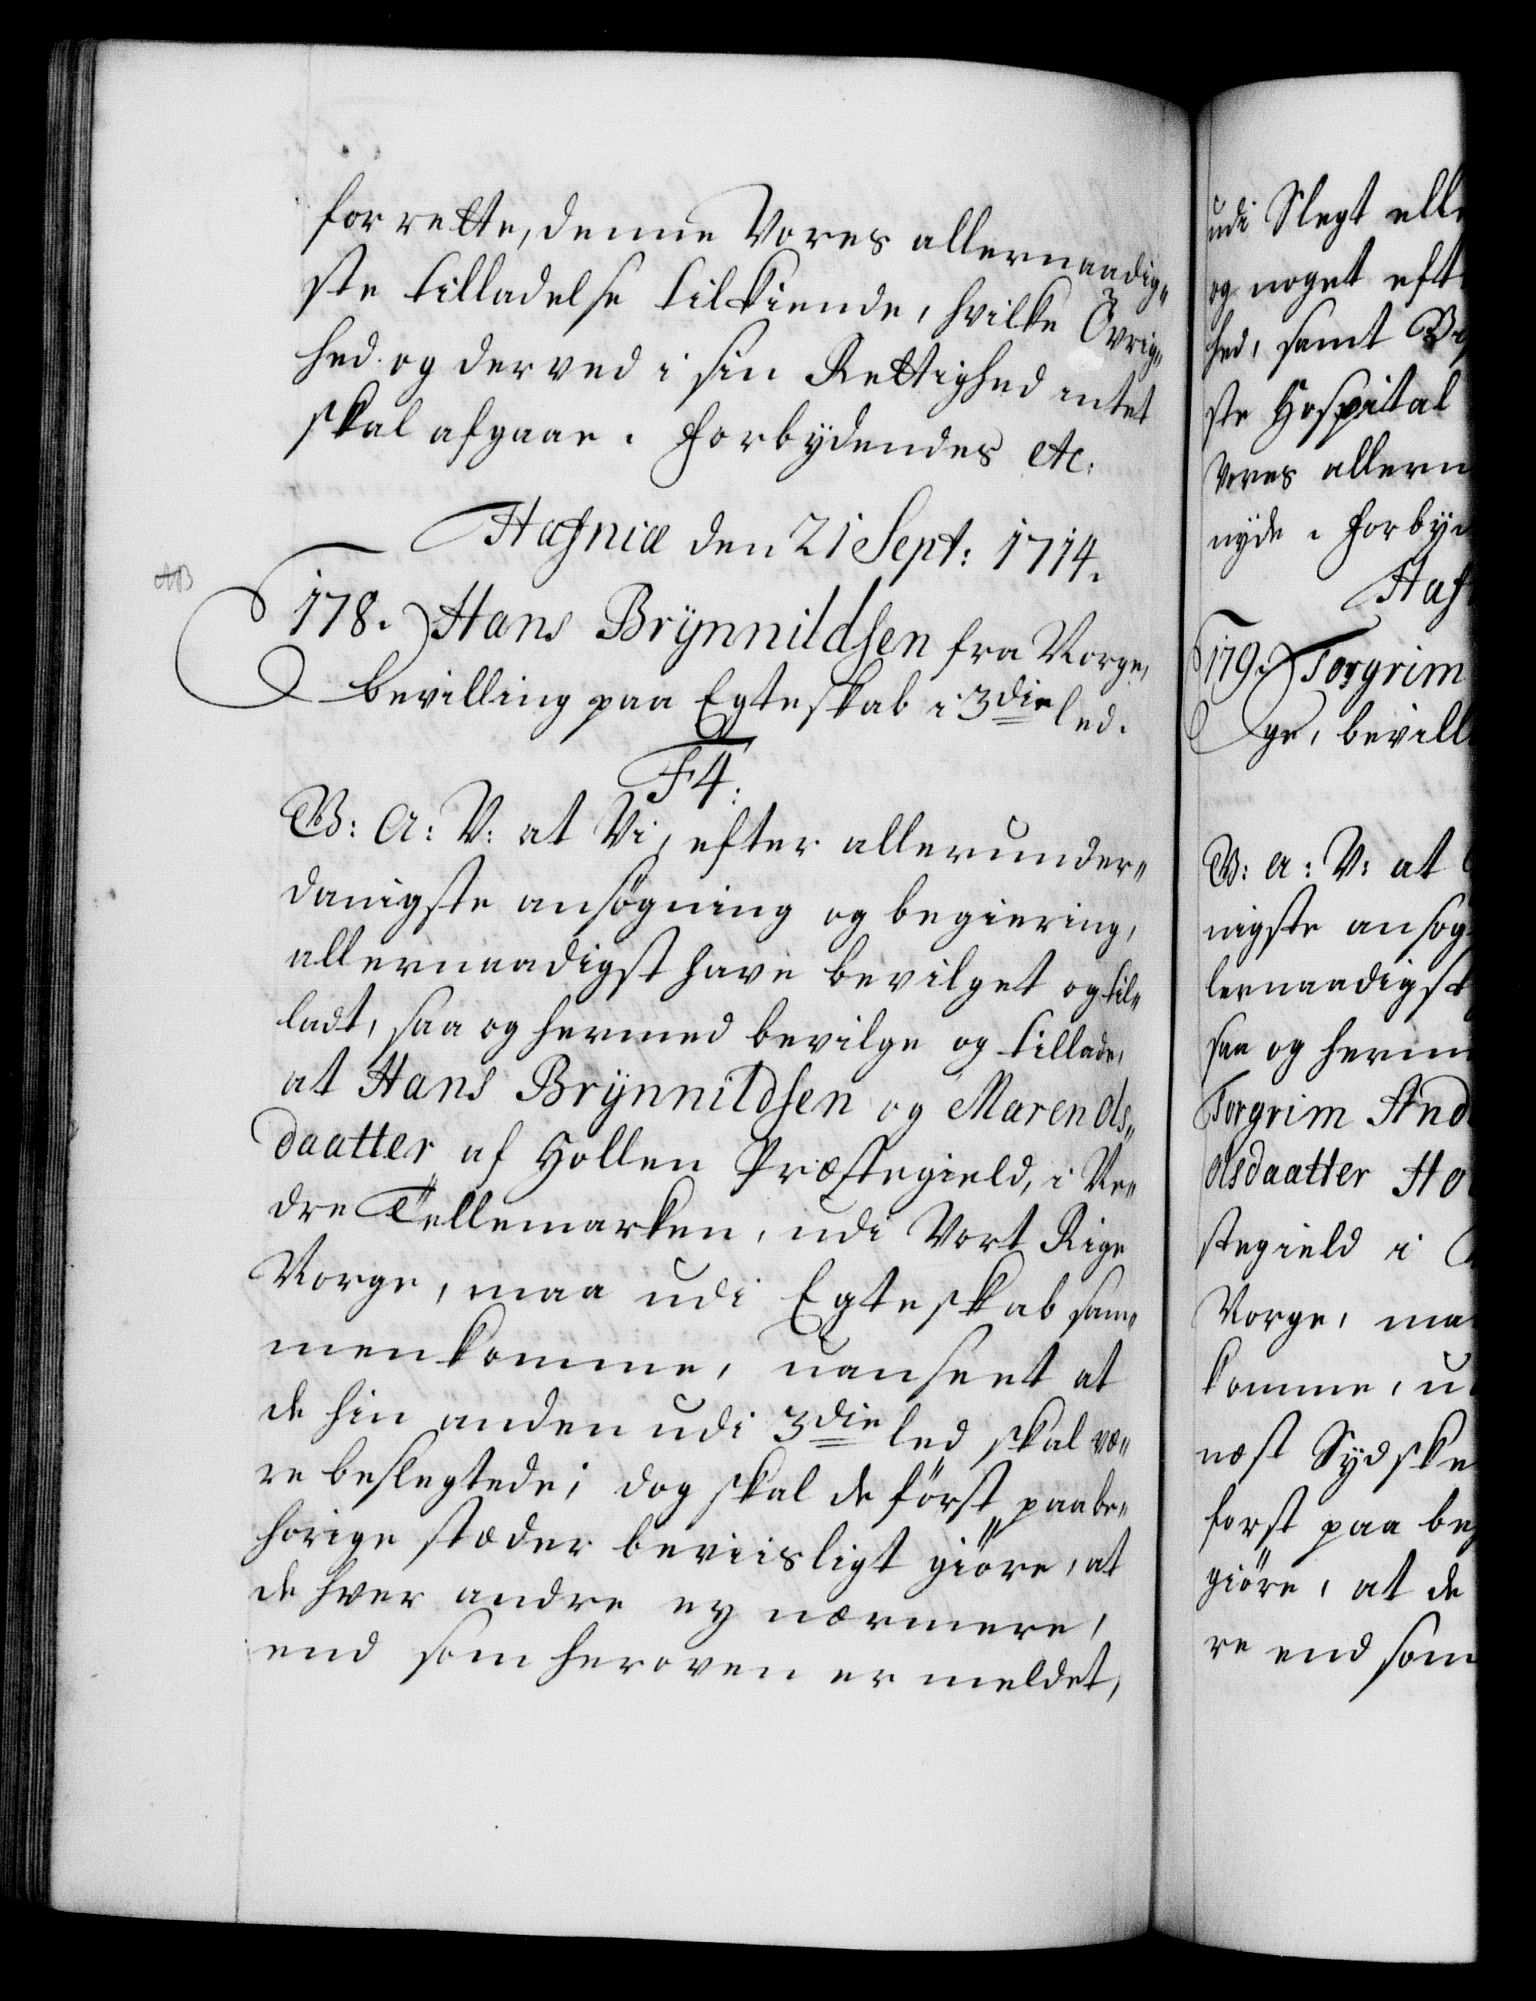 forrette, denne Vores allernaadig„
ste tilladelse tilkiende, hvilke Övrig„
hed. og derved i sin Rettighed intet
skal afgaae. Forbydendes etc:
Hafniæ den 21 Sept: 1714.
AB
178. Hans Brÿnnildsen fra Norge,
bevilling paa Egteskab i 3die led.
F4:
V: A: V: at Vi, efter allerunder„
danigste ansøgning og begiering,
allernaadigst have bevilget og til„
ladt, saa og hermed bevilge og tillade,
at Hans Brÿnnildsen og Maren Ols„
daatter af Hollen Præstegield, i Ne„
dre Tellemarken, udi Vort Rige
Norge, maa udi Egteskab sam„
menkomme, uanseet at
de hin anden udi 3die led skal væ„
re beslegtede; dog skal de först paa be„
hörige stæder beviisligt giöre, at
de hver andre ey nærmere,
end som heroven er meldet,
udi Slegt elle
og noget eft
hed, samt
ste Hospital
Vores allern
nyde. Forbyd
Haf
179. Torgrim
ge, bevill
V: A: V: at
nigste ansøg
lernaadigst
saa og herm
Torgrim And
Olsdaatter Ho
stegield i
Norge, maa
komme, u
næst Sydske
först paa be
giöre, at de
re end som